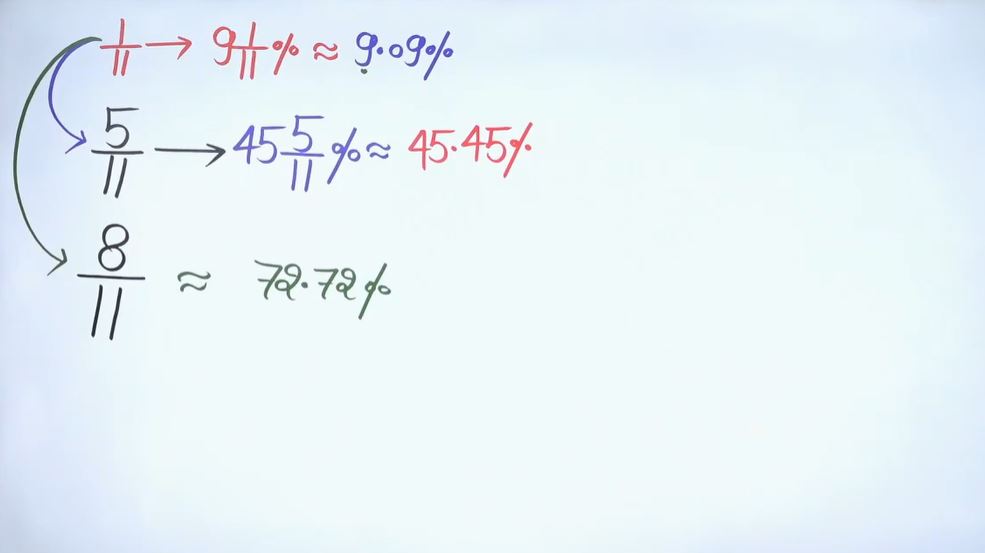 1/11 → 9 1/11 % ≈ 9.09%
5/11 → 45 5/11 % ≈ 45.45%
8/11 ≈ 72.72%